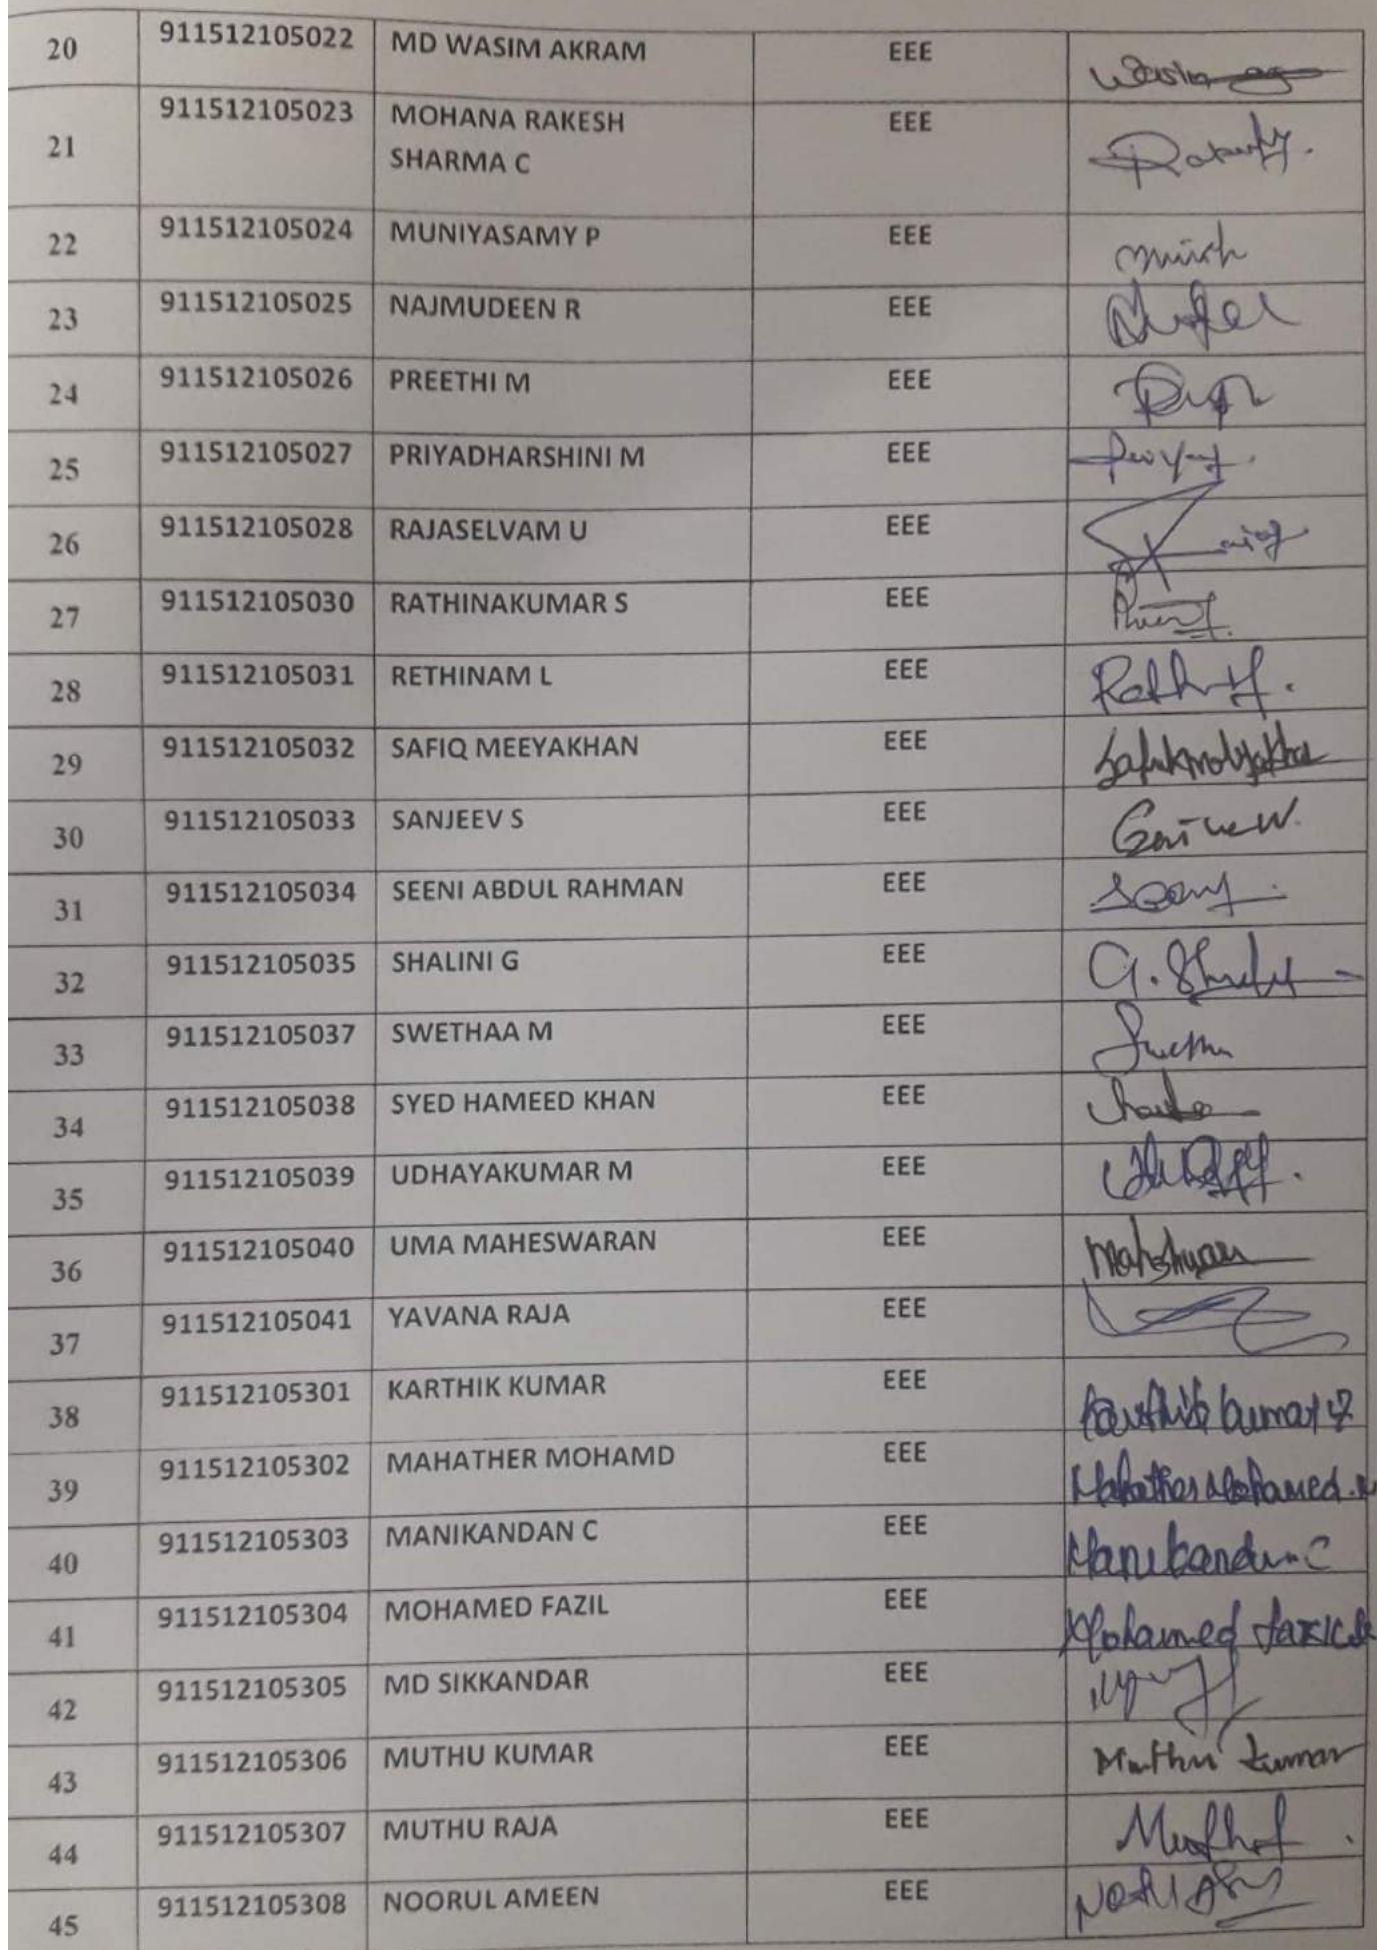 20 911512105022 MD WASIM AKRAM EEE
21 911512105023 MOHANA RAKESH EEE
SHARMA C
22 911512105024 MUNIYASAMY P EEE
23 911512105025 NAJMUDEEN R EEE
24 911512105026 PREETHI M EEE
25 911512105027 PRIYADHARSHINI M EEE
26 911512105028 RAJASELVAM U EEE
27 911512105030 RATHINAKUMAR S EEE
28 911512105031 RETHINAM L EEE
29 911512105032 SAFIQ MEEYAKHAN EEE
30 911512105033 SANJEEV S EEE
31 911512105034 SEENI ABDUL RAHMAN EEE
32 911512105035 SHALINI G EEE
33 911512105037 SWETHAA M EEE
34 911512105038 SYED HAMEED KHAN EEE
35 911512105039 UDHAYAKUMAR M EEE
36 911512105040 UMA MAHESWARAN EEE
37 911512105041 YAVANA RAJA EEE
38 911512105301 KARTHIK KUMAR EEE
39 911512105302 MAHATHER MOHAMD EEE Mahather Mohamed.
40 911512105303 MANIKANDAN C EEE Manikandan C
41 911512105304 MOHAMED FAZIL EEE Mohamed
42 911512105305 MD SIKKANDAR EEE
43 911512105306 MUTHU KUMAR EEE Muthu Kumar
44 911512105307 MUTHU RAJA EEE
45 911512105308 NOORUL AMEEN EEE